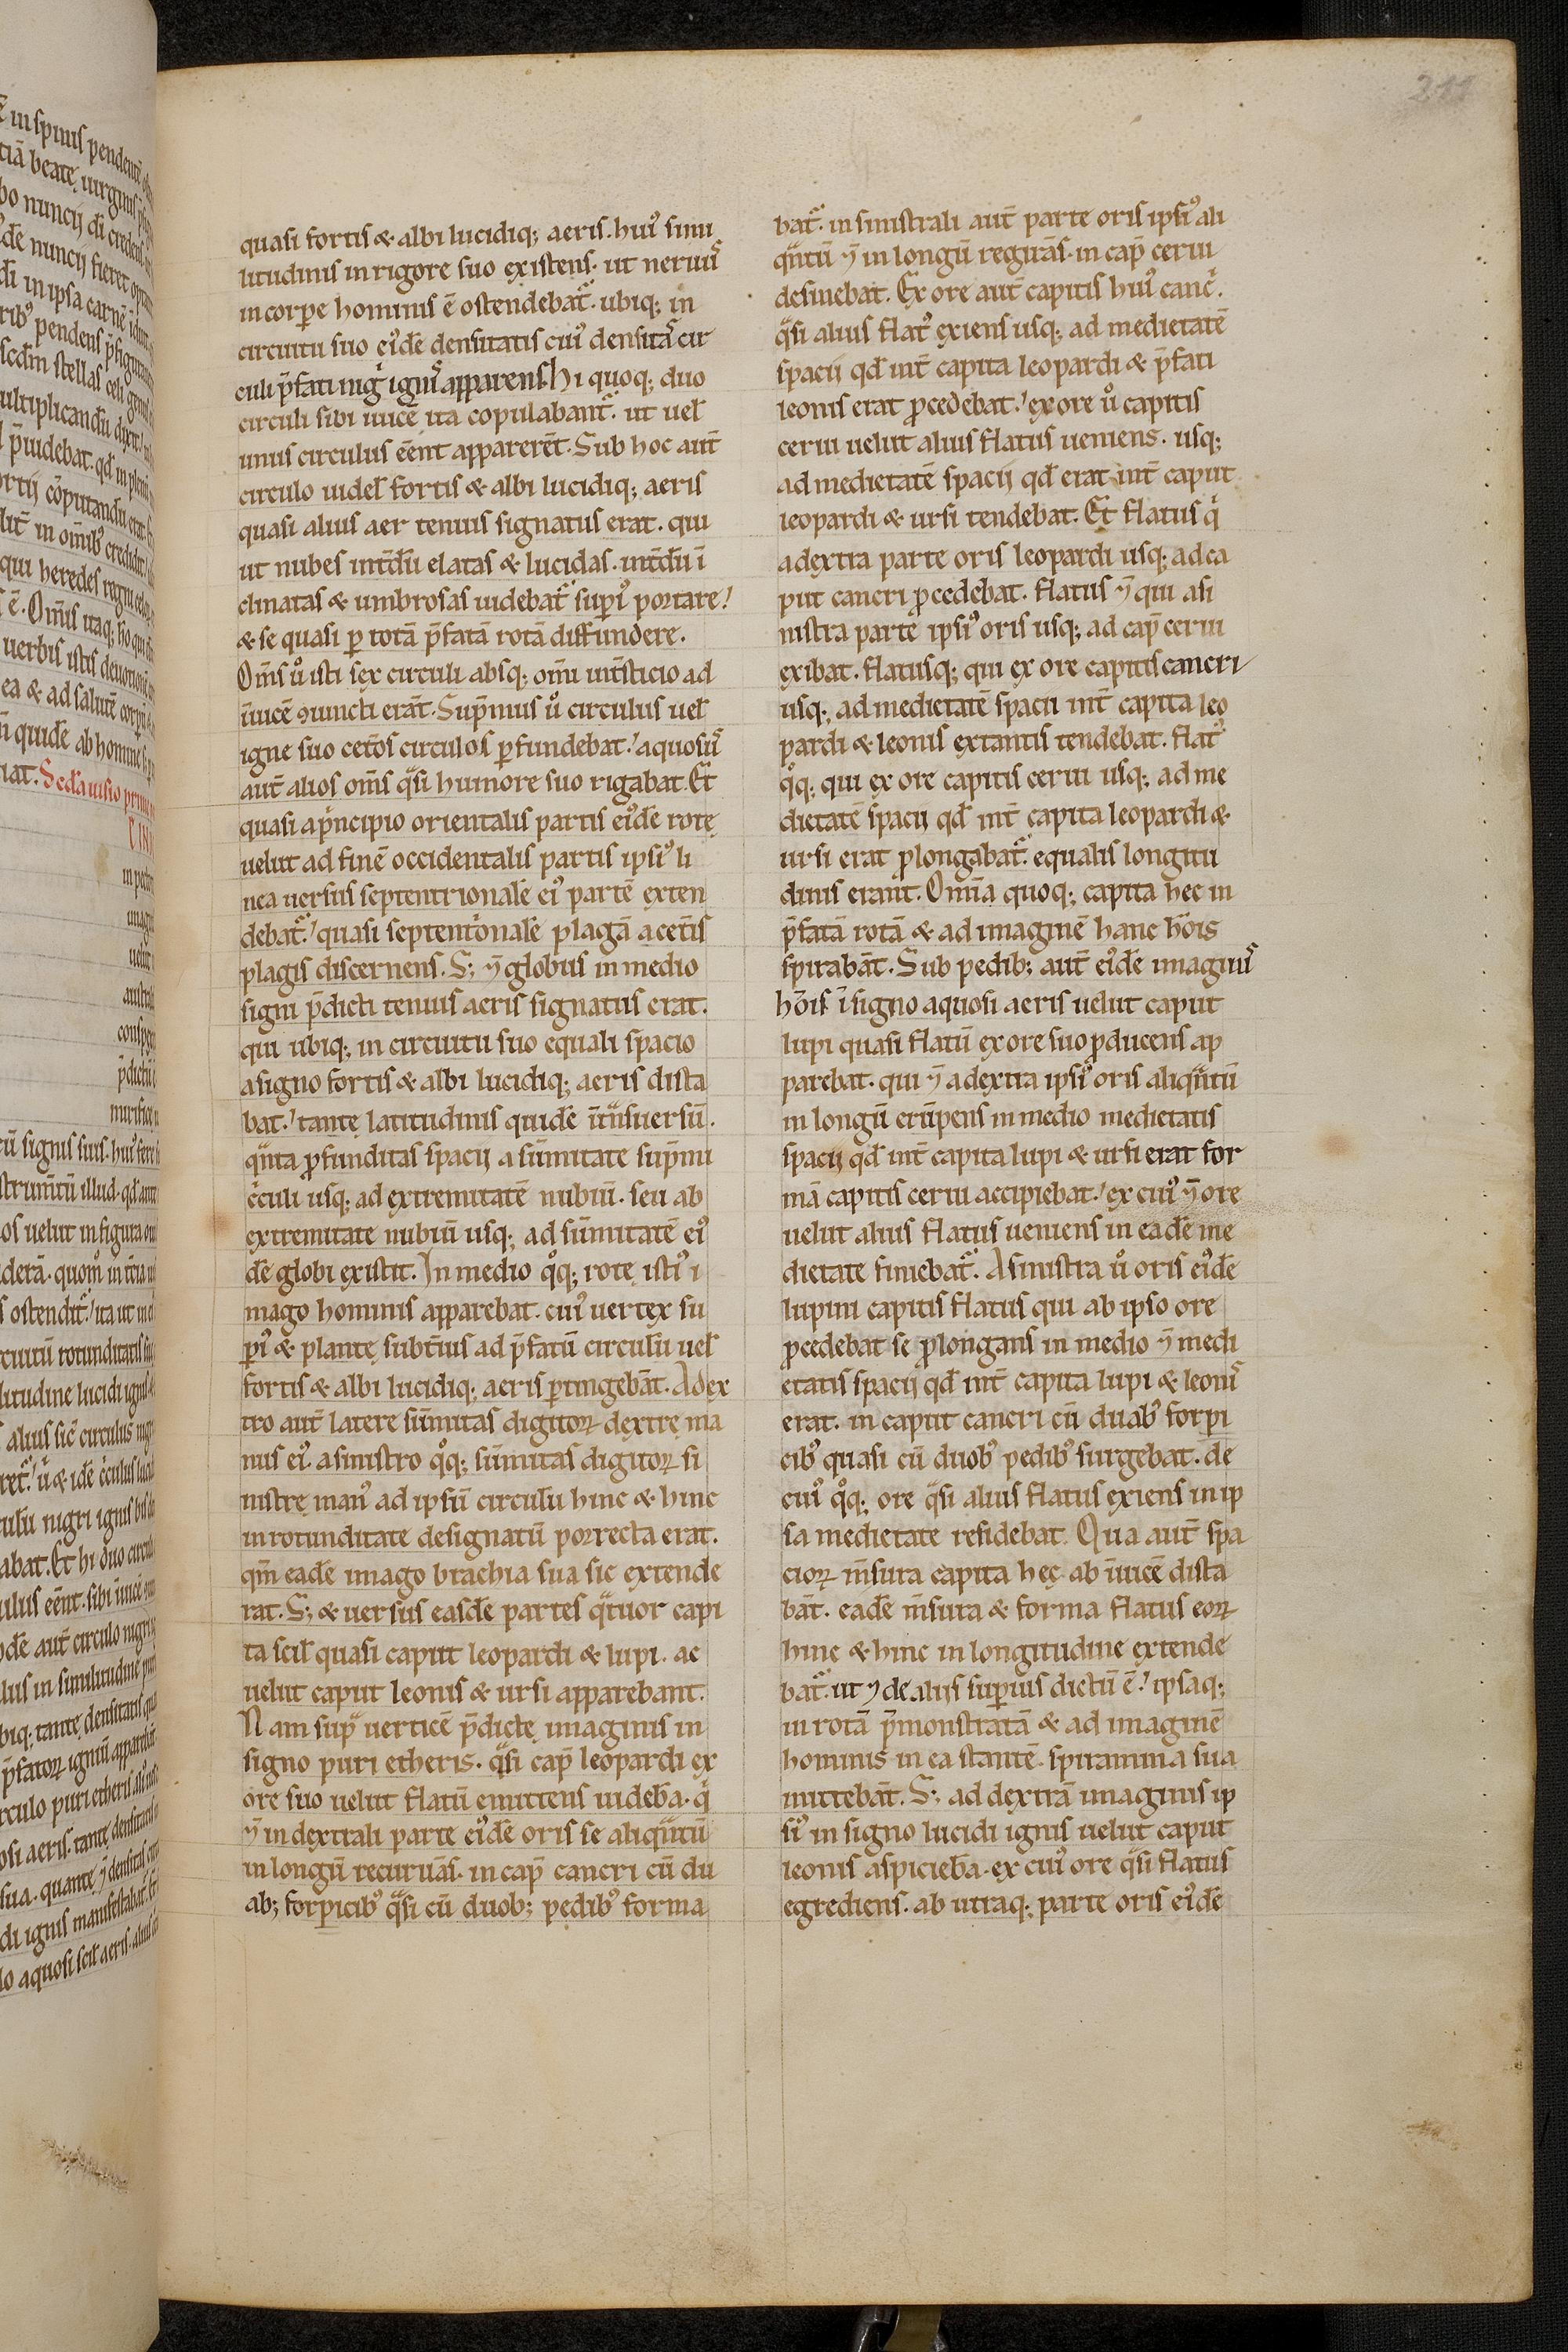 211
quasi fortis & albi lucidiq; aeris. huiꝰ simi
litudinis in rigore suo existens. ut neruuᷤ
in corꝑe hominis ē ostendebat᷑. ubiq; in
circuitu suo eiꝰdē densitatis cuiꝰ densitaᷤ cir
culi p̄fati nigͥ igniᷤ apparens. hi quoq; duo
circuli sibi iuicē ita copulabant᷑. ut uel̄
unus circulus eēnt apparerēt. Sub hoc aut̄
circulo uidel̄ fortis & albi lucidiq; aeris
quasi alius aer tenuis signatus erat. qui
ut nubes int̄dū elatas & lucidas. int̄dū ī
clinatas & umbrosas uidebat᷑ suꝑiꝰ portare!
& se quasi ꝑ totā p̄fatā rotā diffundere.
Om̄s uͦ isti sex circuli absq; omī int̄sticio ad
īuicē ꝯiuncti erāt. Sup̄mus uͦ circulus uel̄
igne suo cet̄os circulos ꝑfundebat! aquosuᷤ
aut̄ alios om̄s qᷓsi humore suo rigabat. Et
quasi a pͥncipio orientalis partis eiꝰdē rotę
uelut ad finē occidentalis partis ipsiꝰ li
nea uersus septentrionalē eiꝰ partē exten
debat᷑! quasi septentͥonalē plagā a cet̄is
plagis discernens. S; ⁊̄ globus in medio
signi p̄dicti tenuis aeris signatus erat.
qui ubiq; in circuitu suo equali spacio
a signo fortis & albi lucidiq; aeris dista
bat! tantę latitudinis quidē īt̄nsuersū.
qᷓnta ꝓfunditas spacij a sūmitate sup̄mi
cͥculi usq; ad extremitatē nubiū. seu ab
extremitate nubiū usq; ad sūmitatē eiꝰ
dē globi existit. In medio qͦq; rotę istiꝰ i
mago hominis apparebat. cuiꝰ uertex su
ꝑiꝰ & plantę subt̄ius ad p̄fatū circulū uel̄
fortis & albi lucidiq; aeris ꝑtingebāt. A dex
tro aut̄ latere sūmitas digitoꝝ dextrę ma
nus eiꝰ. a sinistro qͦq; sūmitas digitoꝝ si
nistrę manꝰ ad ipsū circulū hinc & hinc
in rotunditate designatū porrecta erat.
qm̄ eadē imago brachia sua sic extende
rat. S; & uersus easdē partes qᷓtuor capi
ta scil̄ quasi caput leopardi & lupi. ac
uelut caput leonis & ursi apparebant.
Nam supᷓ uerticē p̄dictę imaginis in
signo puri etheris. qᷓsi cap̄ leopardi ex
ore suo uelut flatū emittens uidebā. qͥ
⁊̄ in dextrali parte eiꝰdē oris se aliqᷓntū
in longū recuruās. in cap̄ cancri cū du
ab; forpicibꝰ qᷓsi cū duob; pedibꝰ forma
bat᷑. in sinistrali aut̄ parte oris ipsiꝰ ali
qᷓntū ⁊̄ in longū reguās. in cap̄ cerui
desinebat. Ex ore aut̄ capitis huiꝰ cancͥ.
qᷓsi alius flatꝰ exiens usq; ad medietatē
spacij qd̄ int̄ capita leopardi & p̄fati
leonis erat ꝓcedebat! ex ore uͦ capitis
cerui uelut alius flatus ueniens. usq;
ad medietatē spacij qd̄ erat int̄ caput
leopardi & ursi tendebat. Et flatus qͥ
a dextra parte oris leopardi usq; ad ca
put cancri ꝓcedebat. flatus ⁊̄ qui a si
nistra parte ipsiꝰ oris usq; ad cap̄ cerui
exibat. flatusq; qui ex ore capitis cancri
usq; ad medietatē spacii int̄ capita leo
pardi & leonis extantis tendebat. flatꝰ
qͦq; qui ex ore capitis cerui usq; ad me
dietatē spacij qd̄ int̄ capita leopardi &
ursi erat ꝓlongabat᷑. equalis longitu
dinis erant. Omīa quoq; capita hec in
p̄fatā rotā & ad imaginē hanc hōis
spirabāt. Sub pedib; aut̄ eiꝰdē imaginiᷤ
hōis ī signo aquosi aeris uelut caput
lupi quasi flatū ex ore suo ꝓducens ap
parebat. qui ⁊̄ a dextra ipsiꝰ oris aliqᷓntū
in longū erūpens in medio medietatis
spacij qd̄ int̄ capita lupi & ursi erat for
mā capitis cerui accipiebat! ex cuiꝰ ⁊̄ ore
uelut alius flatus ueniens in eadē me
dietate finiebat᷑. A sinistra uͦ oris eiꝰdē
lupini capitis flatus qui ab ipso ore
ꝓcedebat se ꝓlongans in medio ⁊̄ medi
etatis spacij qd̄ int̄ capita lupi & leoniᷤ
erat. in caput cancri cū duabꝰ forpi
cibꝰ quasi cū duobꝰ pedibꝰ surgebat. de
cuiꝰ qͦq; ore qᷓsi alius flatus exiens in ip
sa medietate residebat. Qua aut̄ spa
cioꝝ m̄sura capita hec ab īuicē dista
bāt. eadē m̄sura & forma flatus eoꝝ
hinc & hinc in longitudine extende
bat᷑. ut ⁊ de alijs suꝑius dictū ē! ipsaq;
in rotā p̄monstratā & ad imaginē
hominis in ea stantē spiramina sua
mittebāt. S; ad dextrā imaginis ip
siꝰ in signo lucidi ignis uelut caput
leonis aspiciebā. ex cuiꝰ ore qᷓsi flatus
egrediens. ab utraq; parte oris eiꝰdē